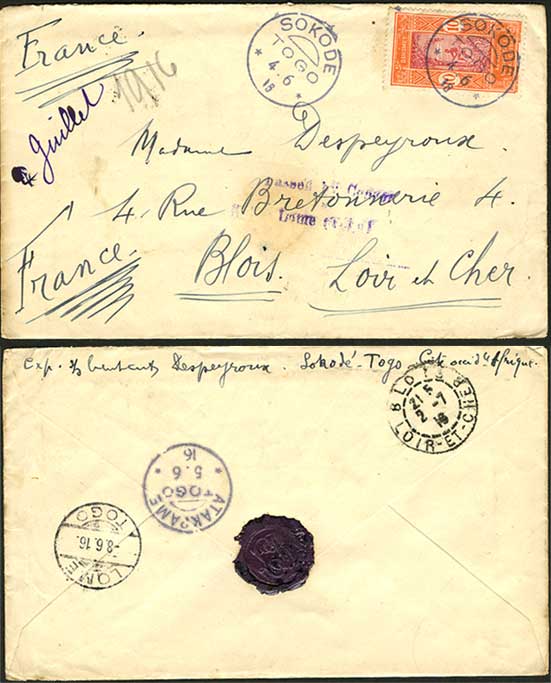 France.
1916
4 Juillet
SOKODE
TOGO
* 4.6 *
16
SOKODE
TOGO
4.6
16
10
Madame Despeyroux
Passed by Censor
4. Rue Bretonnerie 4.
Lome (Togo)
France.
Blois. Loir et Cher.
Exp. Despeyroux. Sokodé-Togo Côte occid. Afrique.
BLOIS
21 5
2 -7
16
LOIR-ET-CHER
ATAKPAME
TOGO
* 5.6 *
16
LOME
-8.6.16.
TOGO